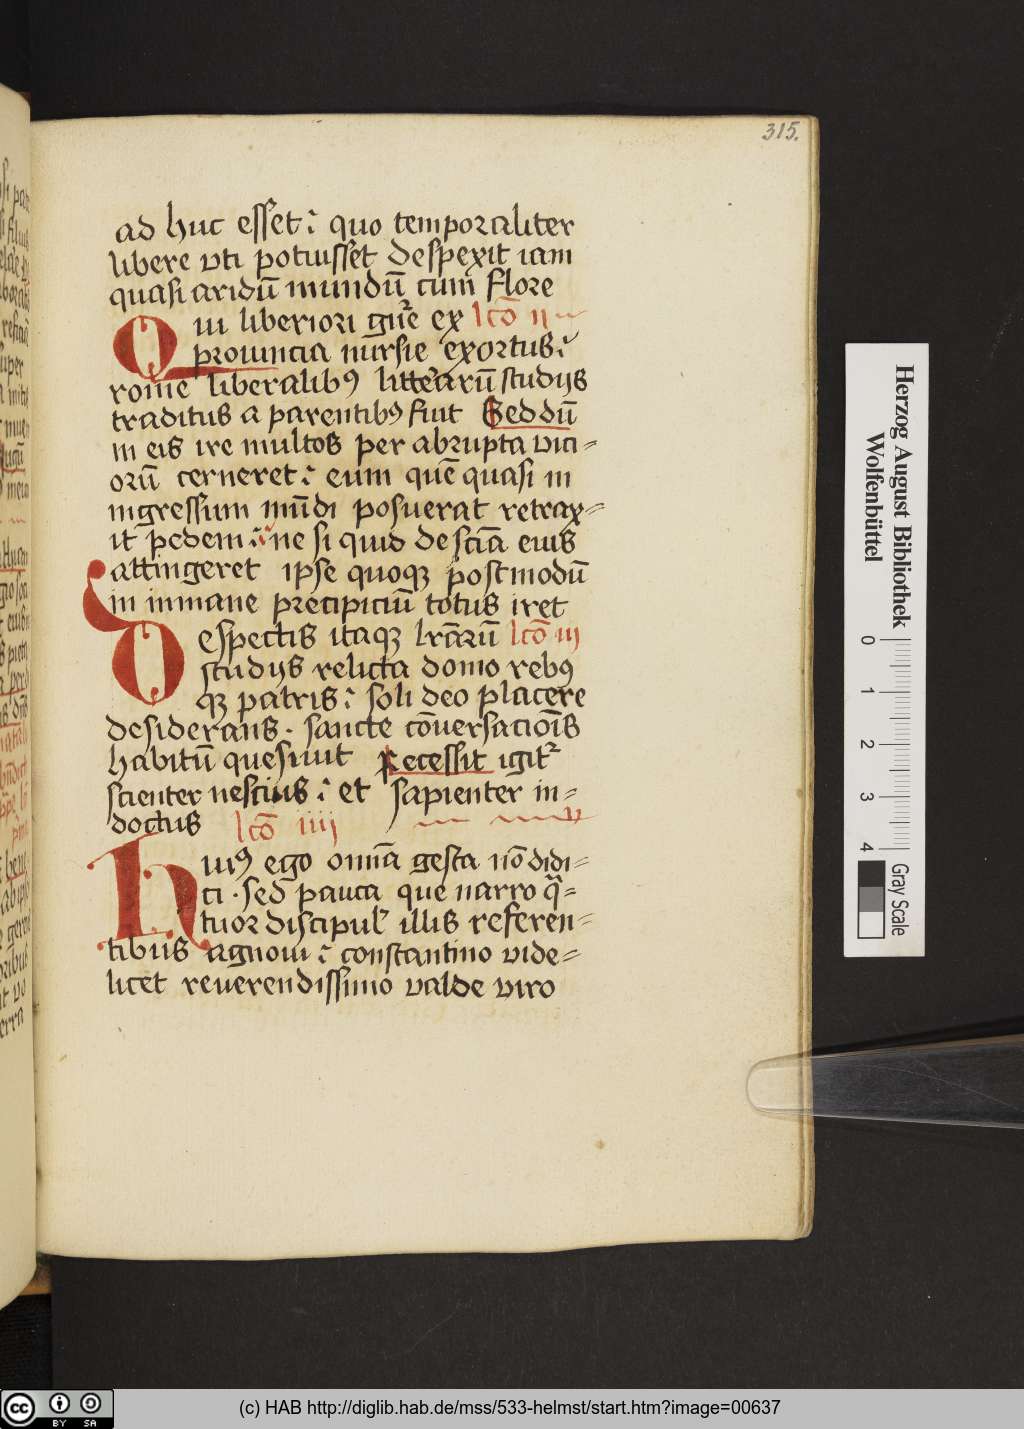 315.
ad huc esset : quo temporaliter
libere vti potuisset despexit iam
quasi aridū mundū cum flore
Qui liberiori gn̄re ex lcō ii
prouincia nursie exortus :
rome liberalibꝯ litterarū studijs
traditus a parentibꝯ fuit Sed dū
in eis ire multos per abrupta vici=
orū cerneret : eum quē quasi in
ingressum mūdi posuerat retrax=
it pedem : ne si quid de scīa eius
attingeret ipse quoqꝫ postmodū
in inmane precipiciū totus iret
Despectis itaqꝫ lrārū lcō iii
studijs relicta domo rebꝯ
qꝫ patris : soli deo placere
desiderans . sancte cōuersaciōīs
habitū quesiuit Recessit igitᷣ
scienter nescius : et sapienter in=
doctus lcō iiii
Huiꝯ ego omīa gesta nō didi=
ci . sed pauca que narro q̄=
tuor discipul' illis referen=
tibus agnoui : constantino vide=
licet reuerendissimo valde viro
Herzog August Bibliothek
Wolfenbüttel
0 1 2 3 4
Gray Scale
(c) HAB http://diglib.hab.de/mss/533-helmst/start.htm?image=00637
cc BY SA